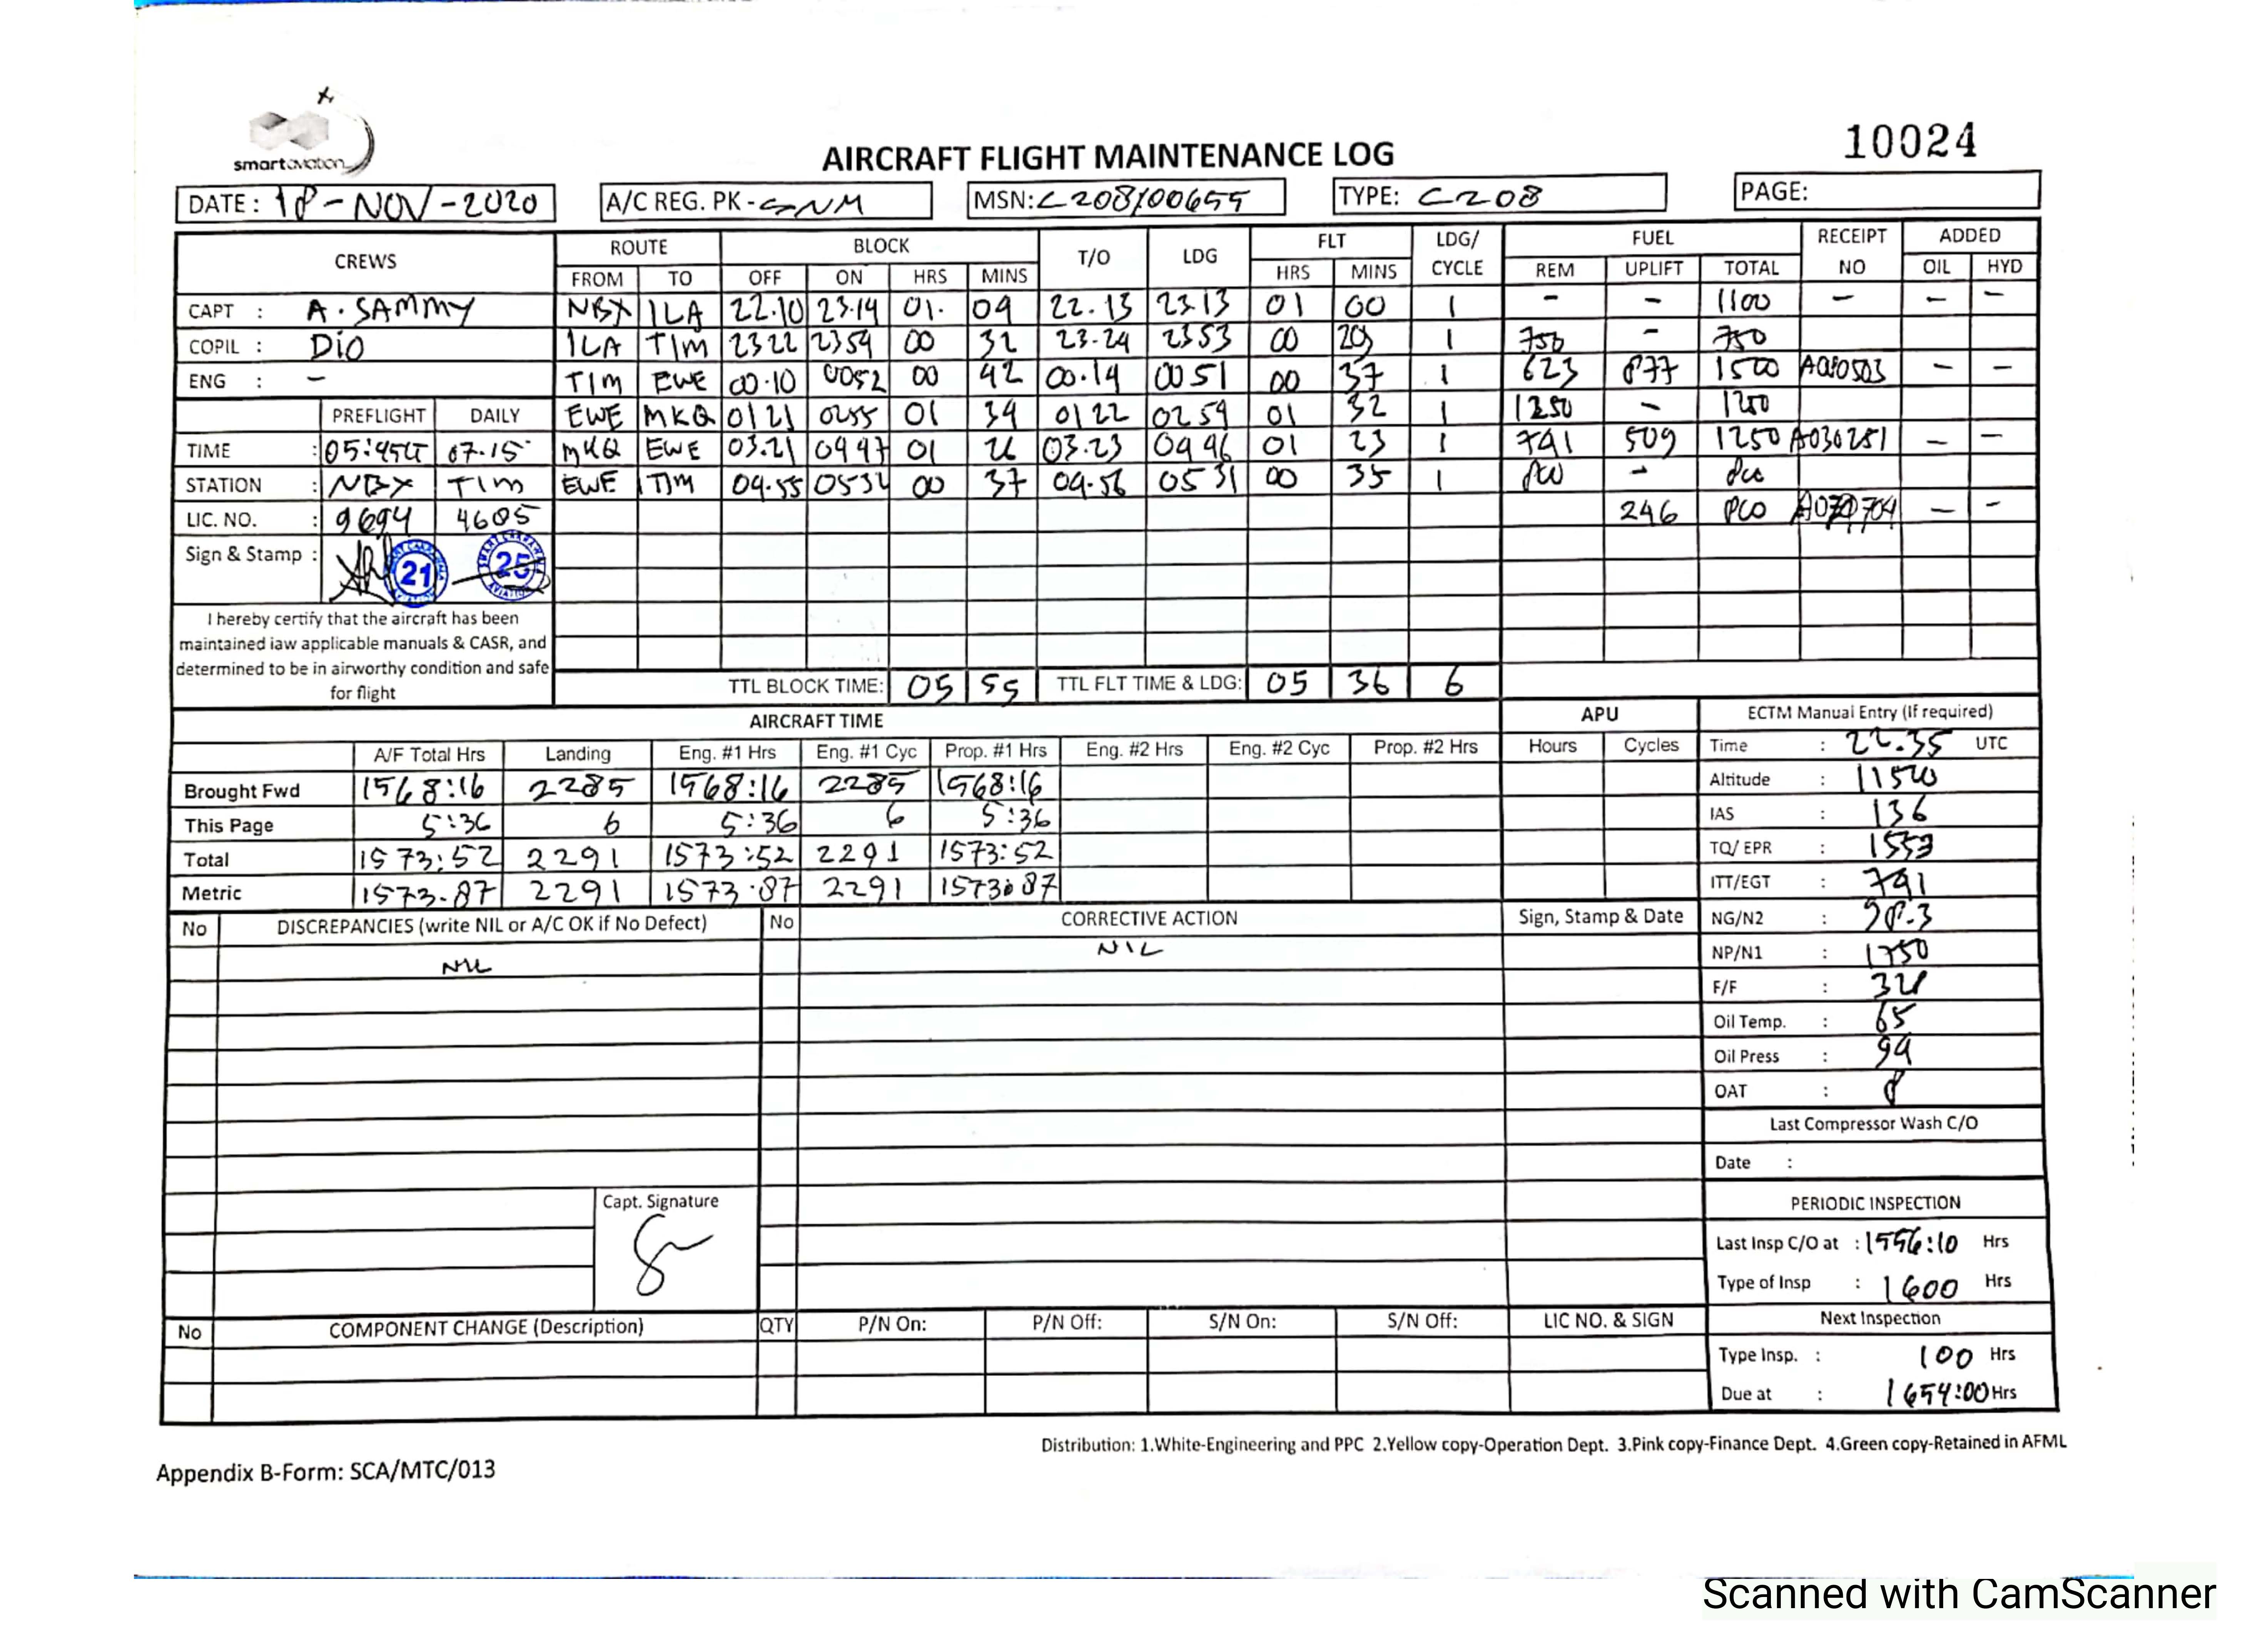 smart aviation
10024
AIRCRAFT FLIGHT MAINTENANCE LOG
DATE: 18-NOV-2020 A/C REG. PK-SNM MSN: C208/00655 TYPE: C208 PAGE:
CREWS ROUTE BLOCK T/O LDG FLT LDG/ CYCLE FUEL RECEIPT NO ADDED
FROM TO OFF ON HRS MINS HRS MINS REM UPLIFT TOTAL OIL HYD
CAPT : A. SAMMY NBX ILA 22.10 23.14 01. 04 22.13 23.13 01 00 1 - - 1100 - - -
COPIL : DIO ILA TIM 2322 2354 00 32 23.24 2353 00 29 1 750 - 750
ENG : - TIM EWE 00.10 0052 00 42 00.14 0051 00 37 1 623 877 1500 - -
PREFLIGHT DAILY EWE MKQ 0121 0255 01 34 0122 0254 01 32 1 1250 - 1250
TIME : 07.15 MKQ EWE 03.21 0447 01 26 03.23 0446 01 23 1 741 509 1250 A030281 - -
STATION : NBX TIM EWE TIM 04.55 00 37 04.56 0531 00 35 1 -
LIC. NO. : 9694 4605 246 - -
Sign & Stamp : 21 25
I hereby certify that the aircraft has been
maintained iaw applicable manuals & CASR, and
determined to be in airworthy condition and safe
for flight
TTL BLOCK TIME: 05 55 TTL FLT TIME & LDG: 05 36 6
AIRCRAFT TIME APU ECTM Manual Entry (If required)
A/F Total Hrs Landing Eng. #1 Hrs Eng. #1 Cyc Prop. #1 Hrs Eng. #2 Hrs Eng. #2 Cyc Prop. #2 Hrs Hours Cycles Time : 22.35 UTC
Brought Fwd 1568:16 2285 1568:16 2285 1568:16 Altitude : 11500
This Page 5:36 6 5:36 6 5:36 IAS : 136
Total 1573:52 2291 1573:52 2291 1573:52 TQ/ EPR : 1553
Metric 1573.87 2291 1573.87 2291 1573.87 ITT/EGT : 741
No DISCREPANCIES (write NIL or A/C OK if No Defect) No CORRECTIVE ACTION Sign, Stamp & Date NG/N2 : 98.3
NIL NIL NP/N1 : 1750
F/F : 328
Oil Temp. : 65
Oil Press : 94
OAT : 8
Last Compressor Wash C/O
Date :
Capt. Signature
PERIODIC INSPECTION
Last Insp C/O at : 1556:10 Hrs
Type of Insp : 1600 Hrs
No COMPONENT CHANGE (Description) QTY P/N On: P/N Off: S/N On: S/N Off: LIC NO. & SIGN Next Inspection
Type Insp. : 100 Hrs
Due at : 1654:00 Hrs
Distribution: 1.White-Engineering and PPC 2.Yellow copy-Operation Dept. 3.Pink copy-Finance Dept. 4.Green copy-Retained in AFML
Appendix B-Form: SCA/MTC/013
Scanned with CamScanner